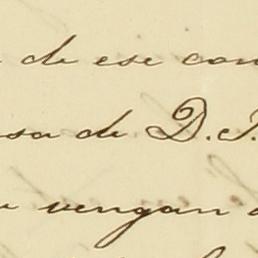 de ese con
sa de D. J.
vengan